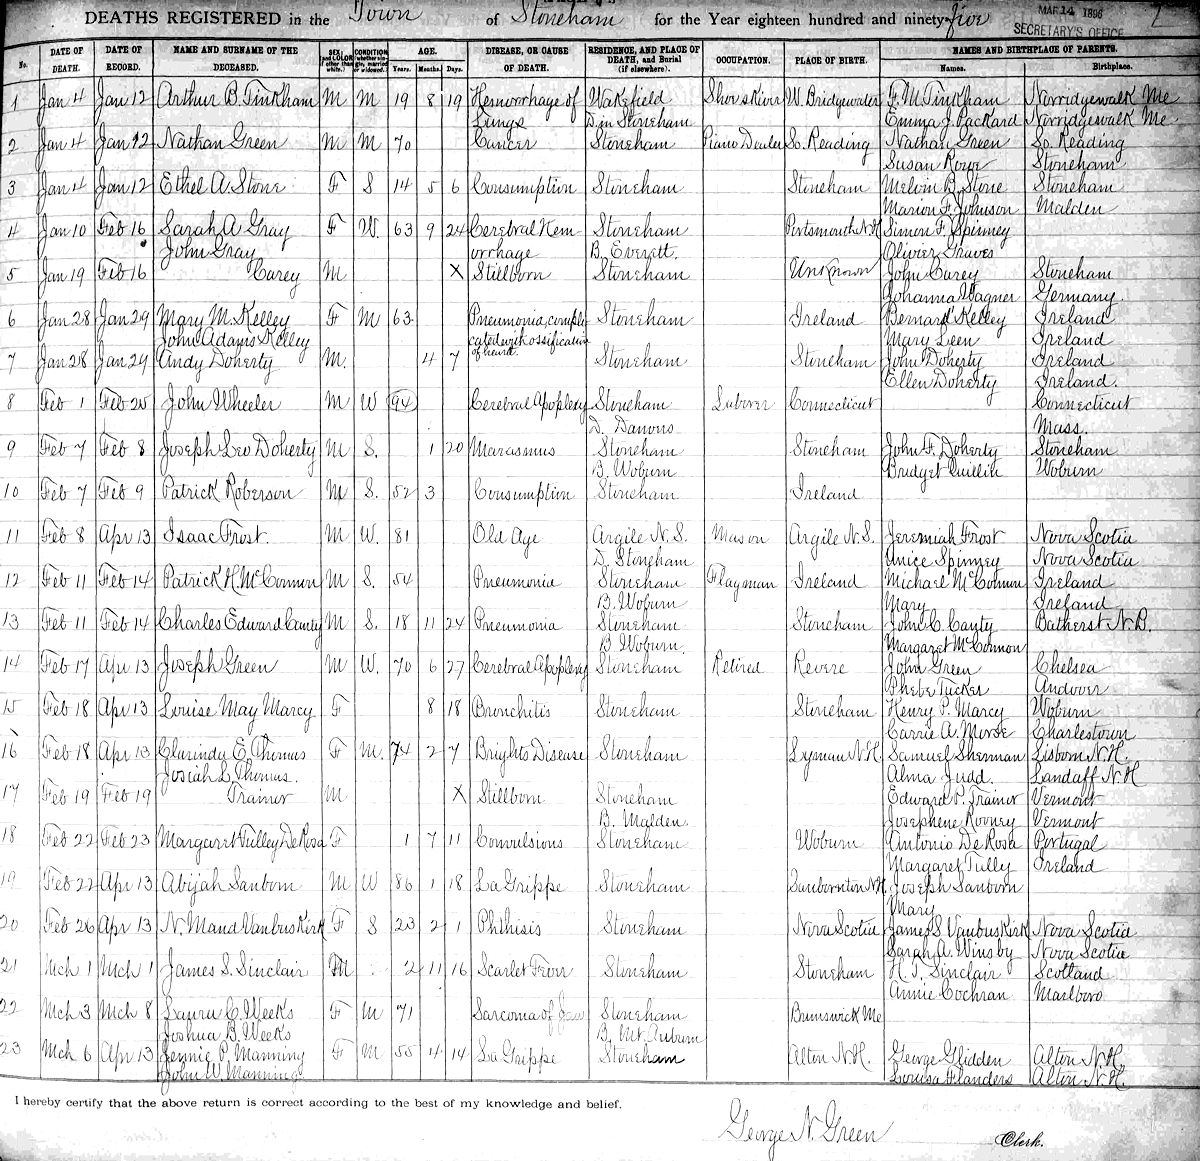 DEATHS REGISTERED in the Town of Stoneham for the Year eighteen hundred and ninety-five
MAR 14 1896
SECRETARY'S OFFICE
No. DATE OF DEATH. DATE OF RECORD. NAME AND SURNAME OF THE DECEASED. SEX and COLOR (if other than white.) CONDITION (whether single, married or widowed.) AGE. Years. Months. Days. DISEASE, OR CAUSE OF DEATH. RESIDENCE, AND PLACE OF DEATH, and Burial (if elsewhere). OCCUPATION. PLACE OF BIRTH. NAMES AND BIRTHPLACE OF PARENTS. Names. Birthplace.
1 Jan 4 Jan 12 Arthur B. Tinkham M M 19 8 19 Hemorrhage of Wakefield W. Bridgewater F. M Tinkham Norridgewalk Me
Lungs D. in Stoneham Emma J. Packard Norridgewalk Me
2 Jan 4 Jan 12 Nathan Green M M 70 Cancer Stoneham Piano Dealer So. Reading Nathan Green So. Reading
Susan Rowe Stoneham
3 Jan 4 Jan 12 Ethel A. Stone F S 14 5 6 Consumption Stoneham Stoneham Melvin B. Stone Stoneham
Marion F. Johnson Malden
4 Jan 10 Feb 16 Sarah A Gray F W. 63 9 24 Cerebral Hem Stoneham Portsmouth N.H Simon F. Spinney
John Gray orrhage B. Everett. Olivier Graves
5 Jan 19 Feb 16 Carey M X Stillborn Stoneham Unknown John Carey Stoneham
Johanna Wagner Germany.
6 Jan 28 Jan 29 Mary M. Kelley F M 63 Pneumonia, compli Stoneham Ireland Bernard Kelley Ireland
John Adams Kelley cated with ossification Mary Leen Ireland
of heart
7 Jan 28 Jan 29 Andy Doherty M. 4 7 Stoneham Stoneham John Doherty Ireland
Ellen Doherty Ireland.
8 Feb 1 Feb 25 John Wheeler M W 94 Cerebral Apoplexy Stoneham Connecticut Connecticut
D. Danvers Mass.
9 Feb 7 Feb 8 Joseph Leo Doherty M S. 1 20 Marasmus Stoneham Stoneham John F. Doherty Stoneham
B. Woburn Bridget Quillin Woburn
10 Feb 7 Feb 9 Patrick Roberson M S. 52 3 Consumption Stoneham Ireland
11 Feb 8 Apr 13 Isaac Frost. M W. 81 Old Age Argile N.S. Mason Argile N.S. Jeremiah Frost Nova Scotia
D. Stoneham Anice Spinney Nova Scotia
12 Feb 11 Feb 14 Patrick H. McConnon M S. 54 Pneumonia Stoneham Flagman Ireland Michael McConnon Ireland
B. Woburn Mary Ireland
13 Feb 11 Feb 14 Charles Edward Canty M S. 18 11 24 Pneumonia Stoneham Stoneham John C. Canty Batherst N.B.
B Woburn. Margaret McConnon
14 Feb 17 Apr 13 Joseph Green M W. 70 6 27 Cerebral Apoplexy Stoneham Retired Revere John Green Chelsea
Phebe Tucker Andover
15 Feb 18 Apr 13 Louise May Marcy F 8 18 Bronchitis Stoneham Stoneham Henry P. Marcy Woburn
Carrie A. Morse Charlestown
16 Feb 18 Apr 13 Clarindy E. Thomas F M. 74 2 7 Brights Disease Stoneham Lyman N.H. Samuel Sherman Lisborn N.H.
Josiah L. Thomas. Alma Judd. Landaff N.H
17 Feb 19 Feb 19 Trainor M X Stillborn Stoneham Edward P. Trainor Vermont
B. Malden Josephene Rooney Vermont
18 Feb 22 Feb 23 Margaret Tulley De Rosa F 1 7 11 Convulsions Stoneham Woburn Antonio De Rosa Portugal
Margaret Tully Ireland
19 Feb 22 Apr 13 Abijah Sanborn M W 86 1 18 La Grippe Stoneham Sanbornton N.H. Joseph Sanborn
Mary
20 Feb 26 Apr 13 N. Maud Vanbuskirk F S 23 2 1 Phthisis Stoneham Nova Scotia James S. Vanbuskirk Nova Scotia
Sarah A. Winsby Nova Scotia
21 Mch 1 Mch 1 James S. Sinclair M 2 11 16 Scarlet Fever Stoneham Stoneham H. T. Sinclair Scotland
Annie Cochran Marlboro
22 Mch 3 Mch 8 Laura C. Weeks F M 71 Sarcoma of Jaw Stoneham Brunswick Me
Joshua B. Weeks B. Mt. Auburn
23 Mch 6 Apr 13 Jennie P. Manning F M 55 4 14 La Grippe Stoneham Alton N.H. George Glidden Alton N.H.
John W. Manning Louisa Flanders Alton N.H.
I hereby certify that the above return is correct according to the best of my knowledge and belief.
George N. Green Clerk.